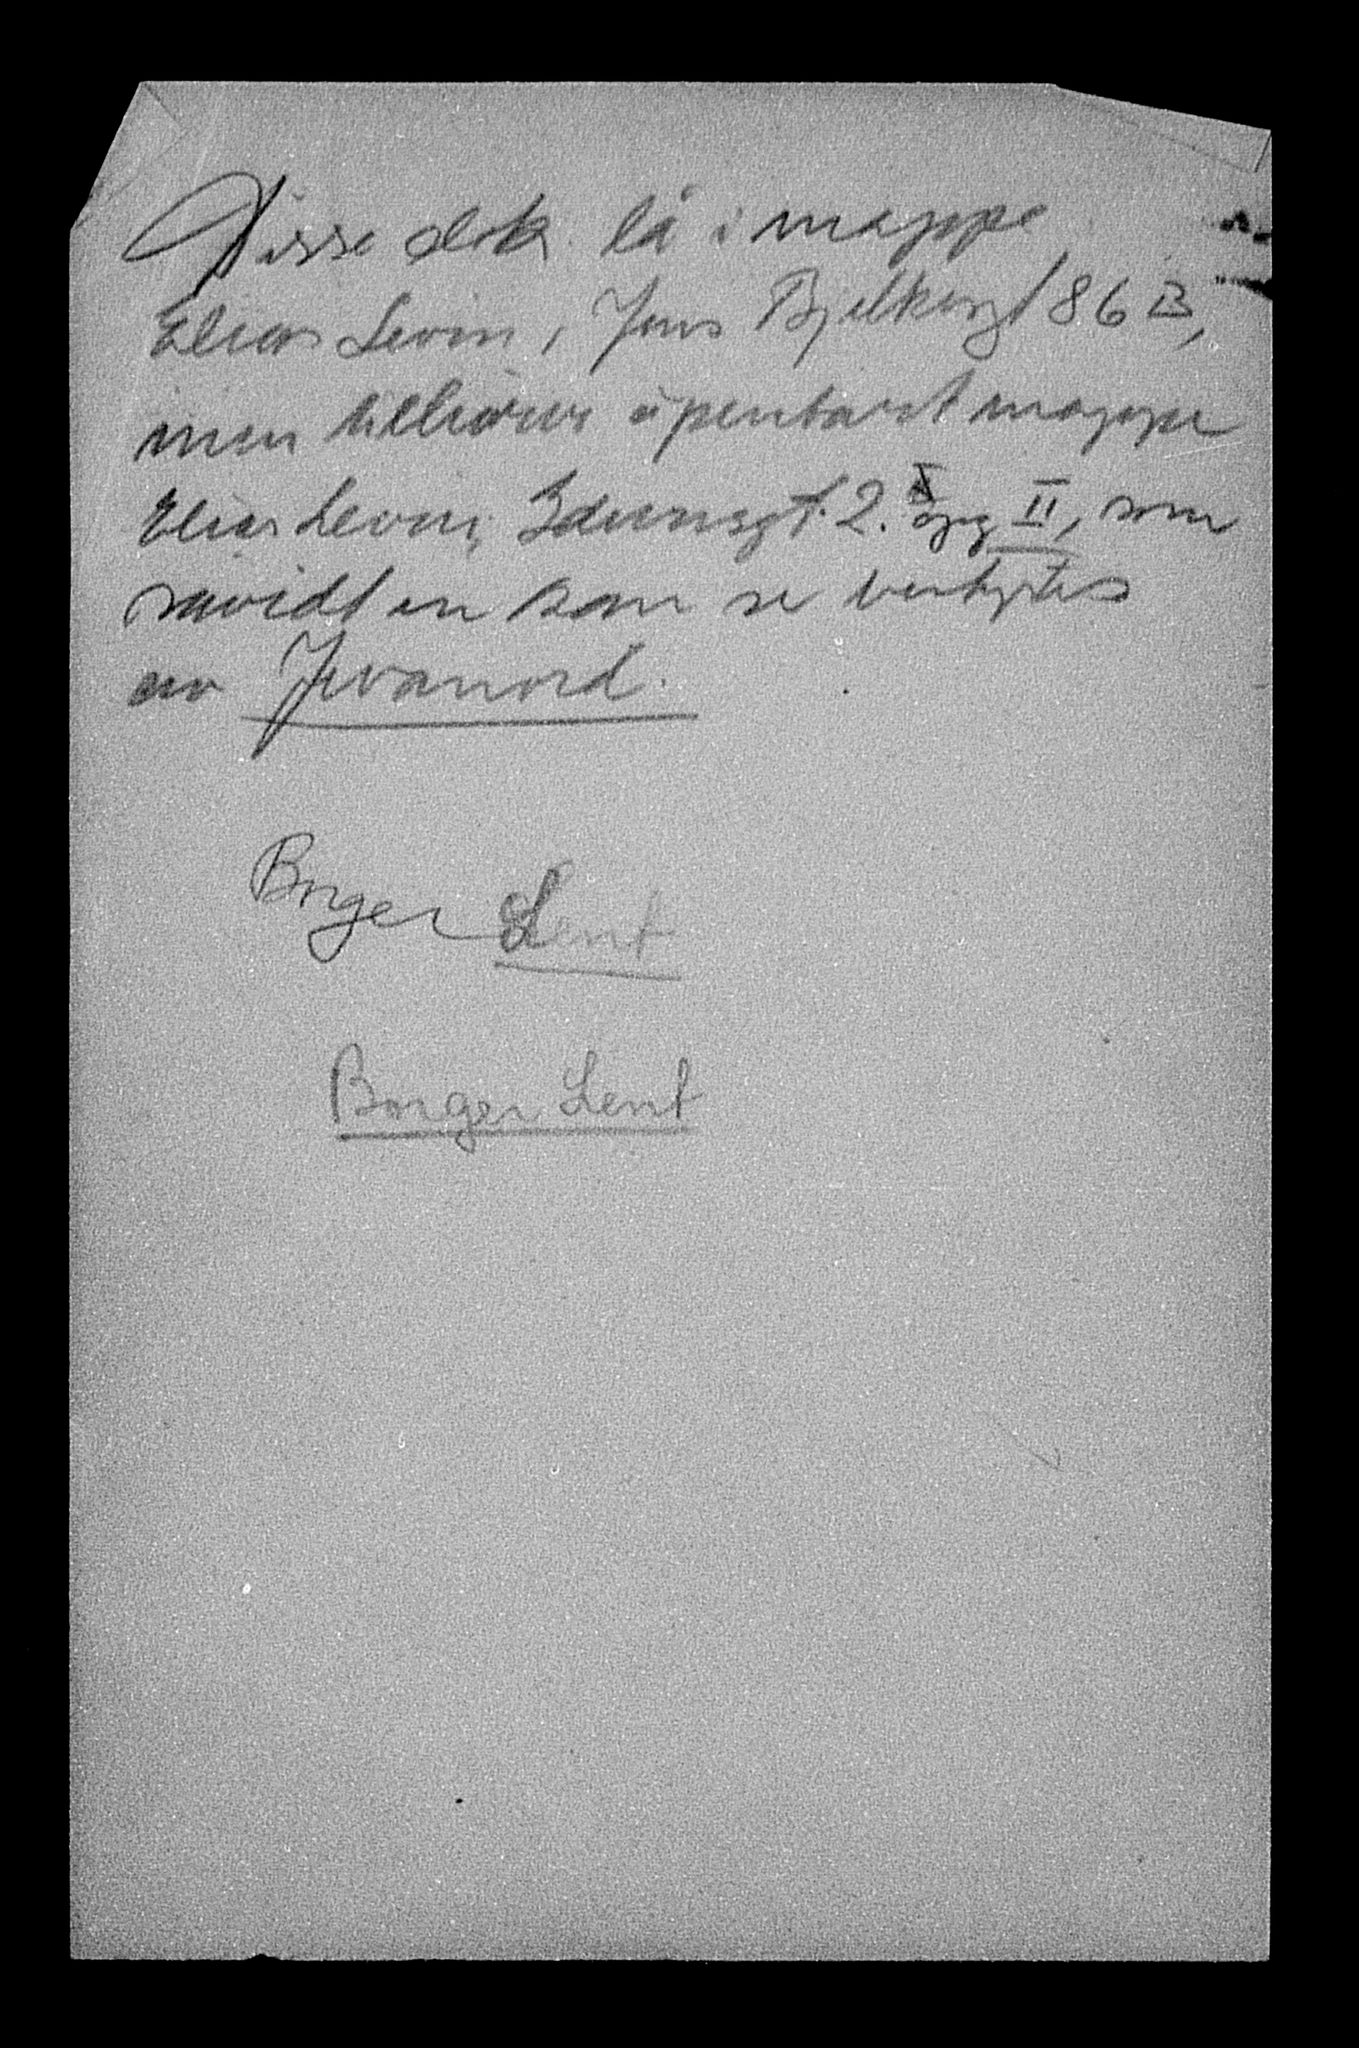 Disse dok lå i mappe
Elias Levin, Jens Bjelkesgt 86 B,
men tilhører åpenbart mappe
Elias Levin, Idunsgt. 2. opg II, som
savidt en kan se bestyres
av Jevanord.
Borger Lent
Borger Lent